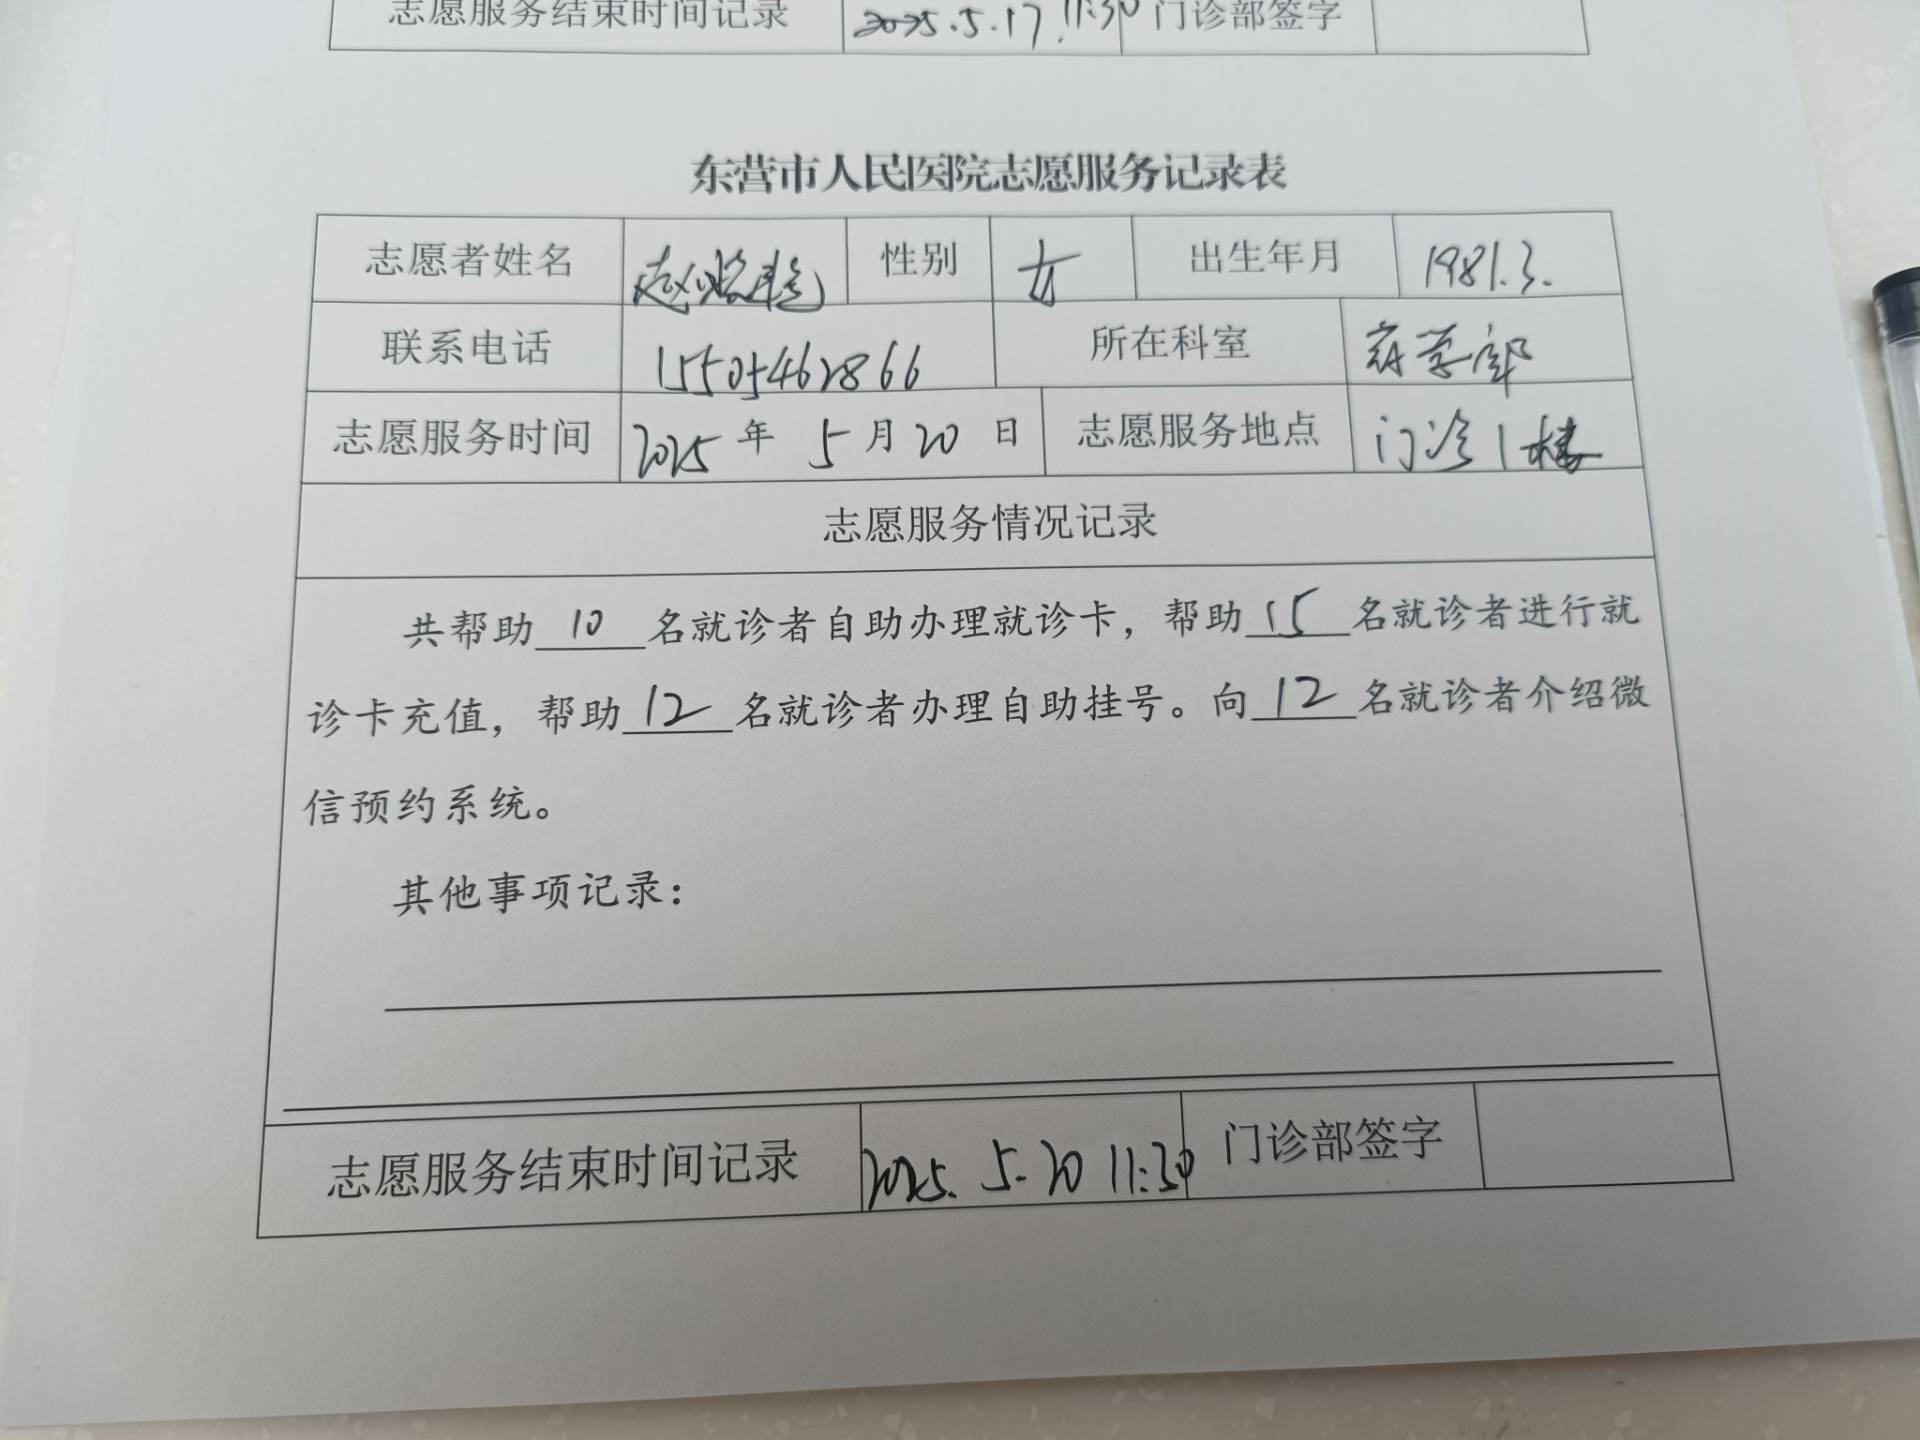 志愿服务结束时间记录 2025.5.17.11:30 门诊部签字
东营市人民医院志愿服务记录表
志愿者姓名 赵 性别 女 出生年月 1981.3.
联系电话 15505462866 所在科室 药学部
志愿服务时间 2025年 5月20日 志愿服务地点 门诊1楼
志愿服务情况记录
共帮助 10 名就诊者自助办理就诊卡，帮助 15 名就诊者进行就
诊卡充值，帮助 12 名就诊者办理自助挂号。向 12 名就诊者介绍微
信预约系统。
其他事项记录：
志愿服务结束时间记录 2025.5.20 11:30 门诊部签字